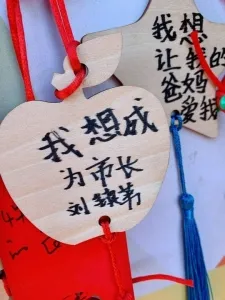 我想成
为市长
我想
让我的
爸妈
爱我